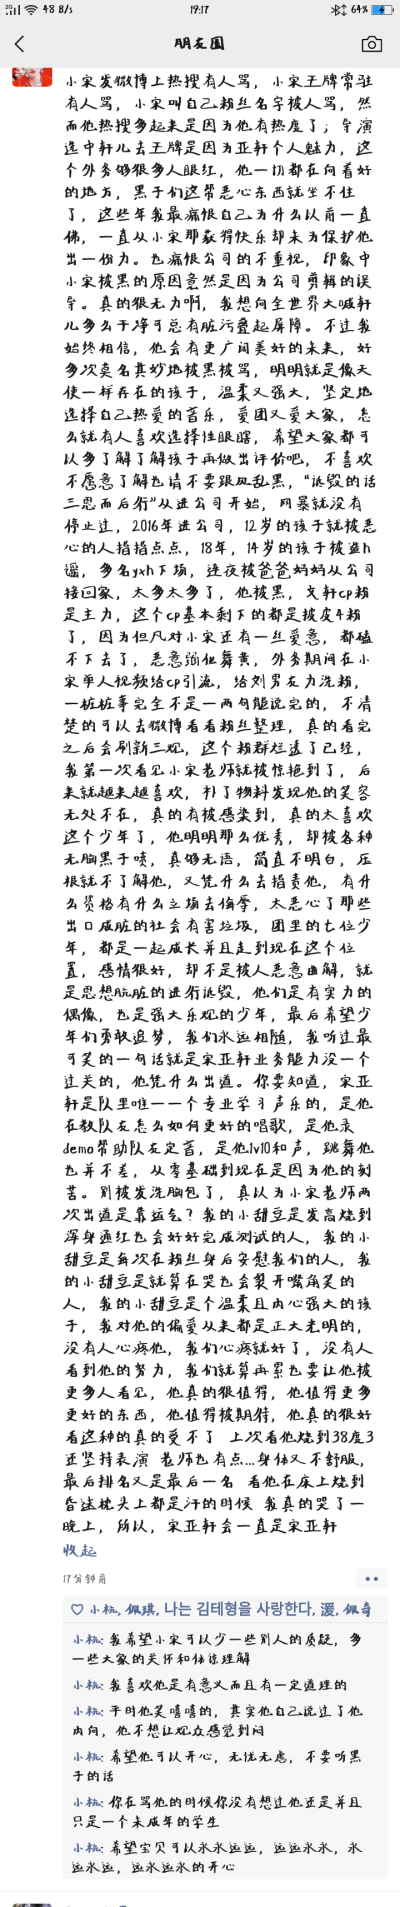 48 B/s 19:17 64%
朋友圈
小宋发微博上热搜有人骂，小宋王牌常驻
有人骂，小宋叫自己粉丝名字被人骂，然
而他热搜多起来是因为他有热度了；导演
选中轩儿去王牌是因为亚轩个人魅力，这
个外务够很多人眼红，他一切都在向着好
的地方，黑子们这帮恶心东西就坐不住
了，这些年我最痛恨自己为什么以前一直
佛，一直从小宋那获得快乐却未为保护他
出一份力。也痛恨公司的不重视，印象中
小宋被黑的原因竟然是因为公司剪辑的误
导。真的很无力啊，我想向全世界大喊轩
儿多么干净可总有脏污叠起屏障。不过我
始终相信，他会有更广阔美好的未来，好
多次莫名其妙地被黑被骂，明明就是像天
使一样存在的孩子，温柔又强大，坚定地
选择自己热爱的音乐，爱团又爱大家，怎
么就有人喜欢选择性眼瞎，希望大家都可
以多了解了解孩子再做出评价吧，不喜欢
不愿意了解也请不要跟风乱黑，“诋毁的话
三思而后行”从进公司开始，网暴就没有
停止过，2016年进公司，12岁的孩子就被恶
心的人指指点点，18年，14岁的孩子被盗h
谣，多名yxh下场，连夜被爸爸妈妈从公司
接回家，太多太多了，他被黑，文轩cp粉
是主力，这个cp基本剩下的都是披皮4粉
了，因为但凡对小宋还有一丝爱意，都磕
不下去了，恶意骗他舞黄，外务期间在小
宋单人视频给cp引流，给刘男友力洗粉，
一桩桩事完全不是一两句能说完的，不清
楚的可以去微博看看粉丝整理，真的看完
之后会刷新三观，这个粉群烂透了已经，
我第一次看见小宋老师就被惊艳到了，后
来就越来越喜欢，补了物料发现他的笑容
无处不在，真的有被感染到，真的太喜欢
这个少年了，他明明那么优秀，却被各种
无脑黑子喷，真够无语，简直不明白，压
根就不了解他，又凭什么去指责他，有什
么资格有什么立场去侮辱，太恶心了那些
出口成脏的社会有害垃圾，团里的七位少
年，都是一起成长并且走到现在这个位
置，感情很好，却不是被人恶意曲解，就
是思想肮脏的进行诋毁，他们是有实力的
偶像，也是强大乐观的少年，最后希望少
年们勇敢追梦，我们永远相随，我听过最
可笑的一句话就是宋亚轩业务能力没一个
过关的，他凭什么出道。你要知道，宋亚
轩是队里唯一一个专业学习声乐的，是他
在教队友怎么如何更好的唱歌，是他录
demo帮助队友定音，是他1v10和声，跳舞他
也并不差，从零基础到现在是因为他的刻
苦。别被发洗脑包了，真以为小宋老师两
次出道是靠运气？我的小甜豆是发高烧到
浑身通红也会好好完成测试的人，我的小
甜豆是每次在粉丝身后安慰我们的人，我
的小甜豆是就算在哭也会裂开嘴角笑的
人，我的小甜豆是个温柔且内心强大的孩
子，我对他的偏爱从来都是正大光明的，
没有人心疼他，我们心疼就好了，没有人
看到他的努力，我们就算再累也要让他被
更多人看见，他真的很值得，他值得更多
更好的东西，他值得被期待，他真的很好
看这种的真的受不了 上次看他烧到38度3
还坚持表演 老师也有点...身体又不舒服，
最后排名又是最后一名 看他在床上烧到
昏迷枕头上都是汗的时候 我真的哭了一
晚上，所以，宋亚轩会一直是宋亚轩
收起
17分钟前
小杭, 佩琪, 나는 김태형을 사랑한다, 湲, 佩奇
小杭: 我希望小宋可以少一些别人的质疑，多
一些大家的关怀和体谅理解
小杭: 我喜欢他是有意义而且有一定道理的
小杭: 平时他笑嘻嘻的，其实他自己说过了他
内向，他不想让观众感觉到闷
小杭: 希望他可以开心，无忧无虑，不要听黑
子的话
小杭: 你在骂他的时候你没有想过他还是并且
只是一个未成年的学生
小杭: 希望宝贝可以永永远远，远远永永，永
远永远，远永远永的开心